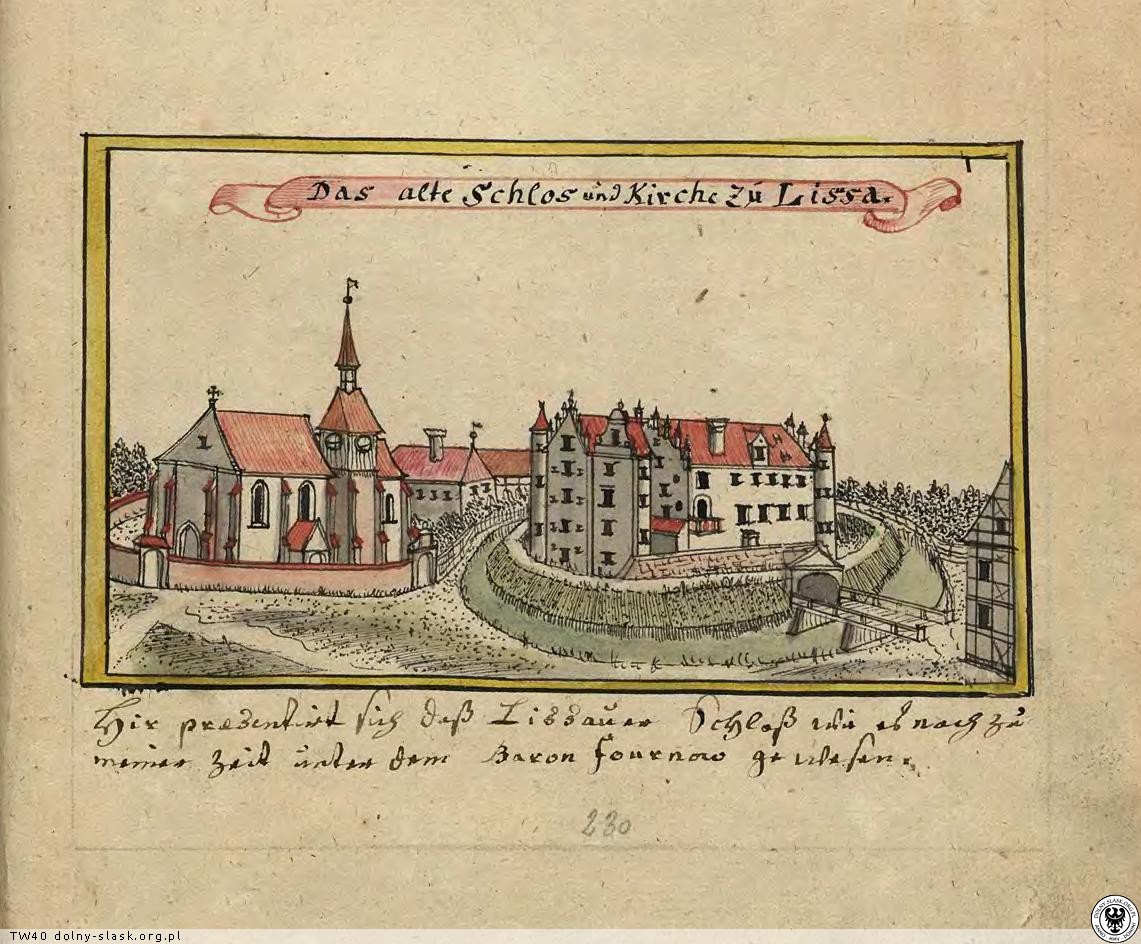 Das alte Schlos und Kirche zu Lissa.
Hir præsentirt sich daß Lissauer Schloß wie es noch zu
meiner Zeit unter dem Baron Fournow gewesen.
230
TW40 dolny-slask.org.pl